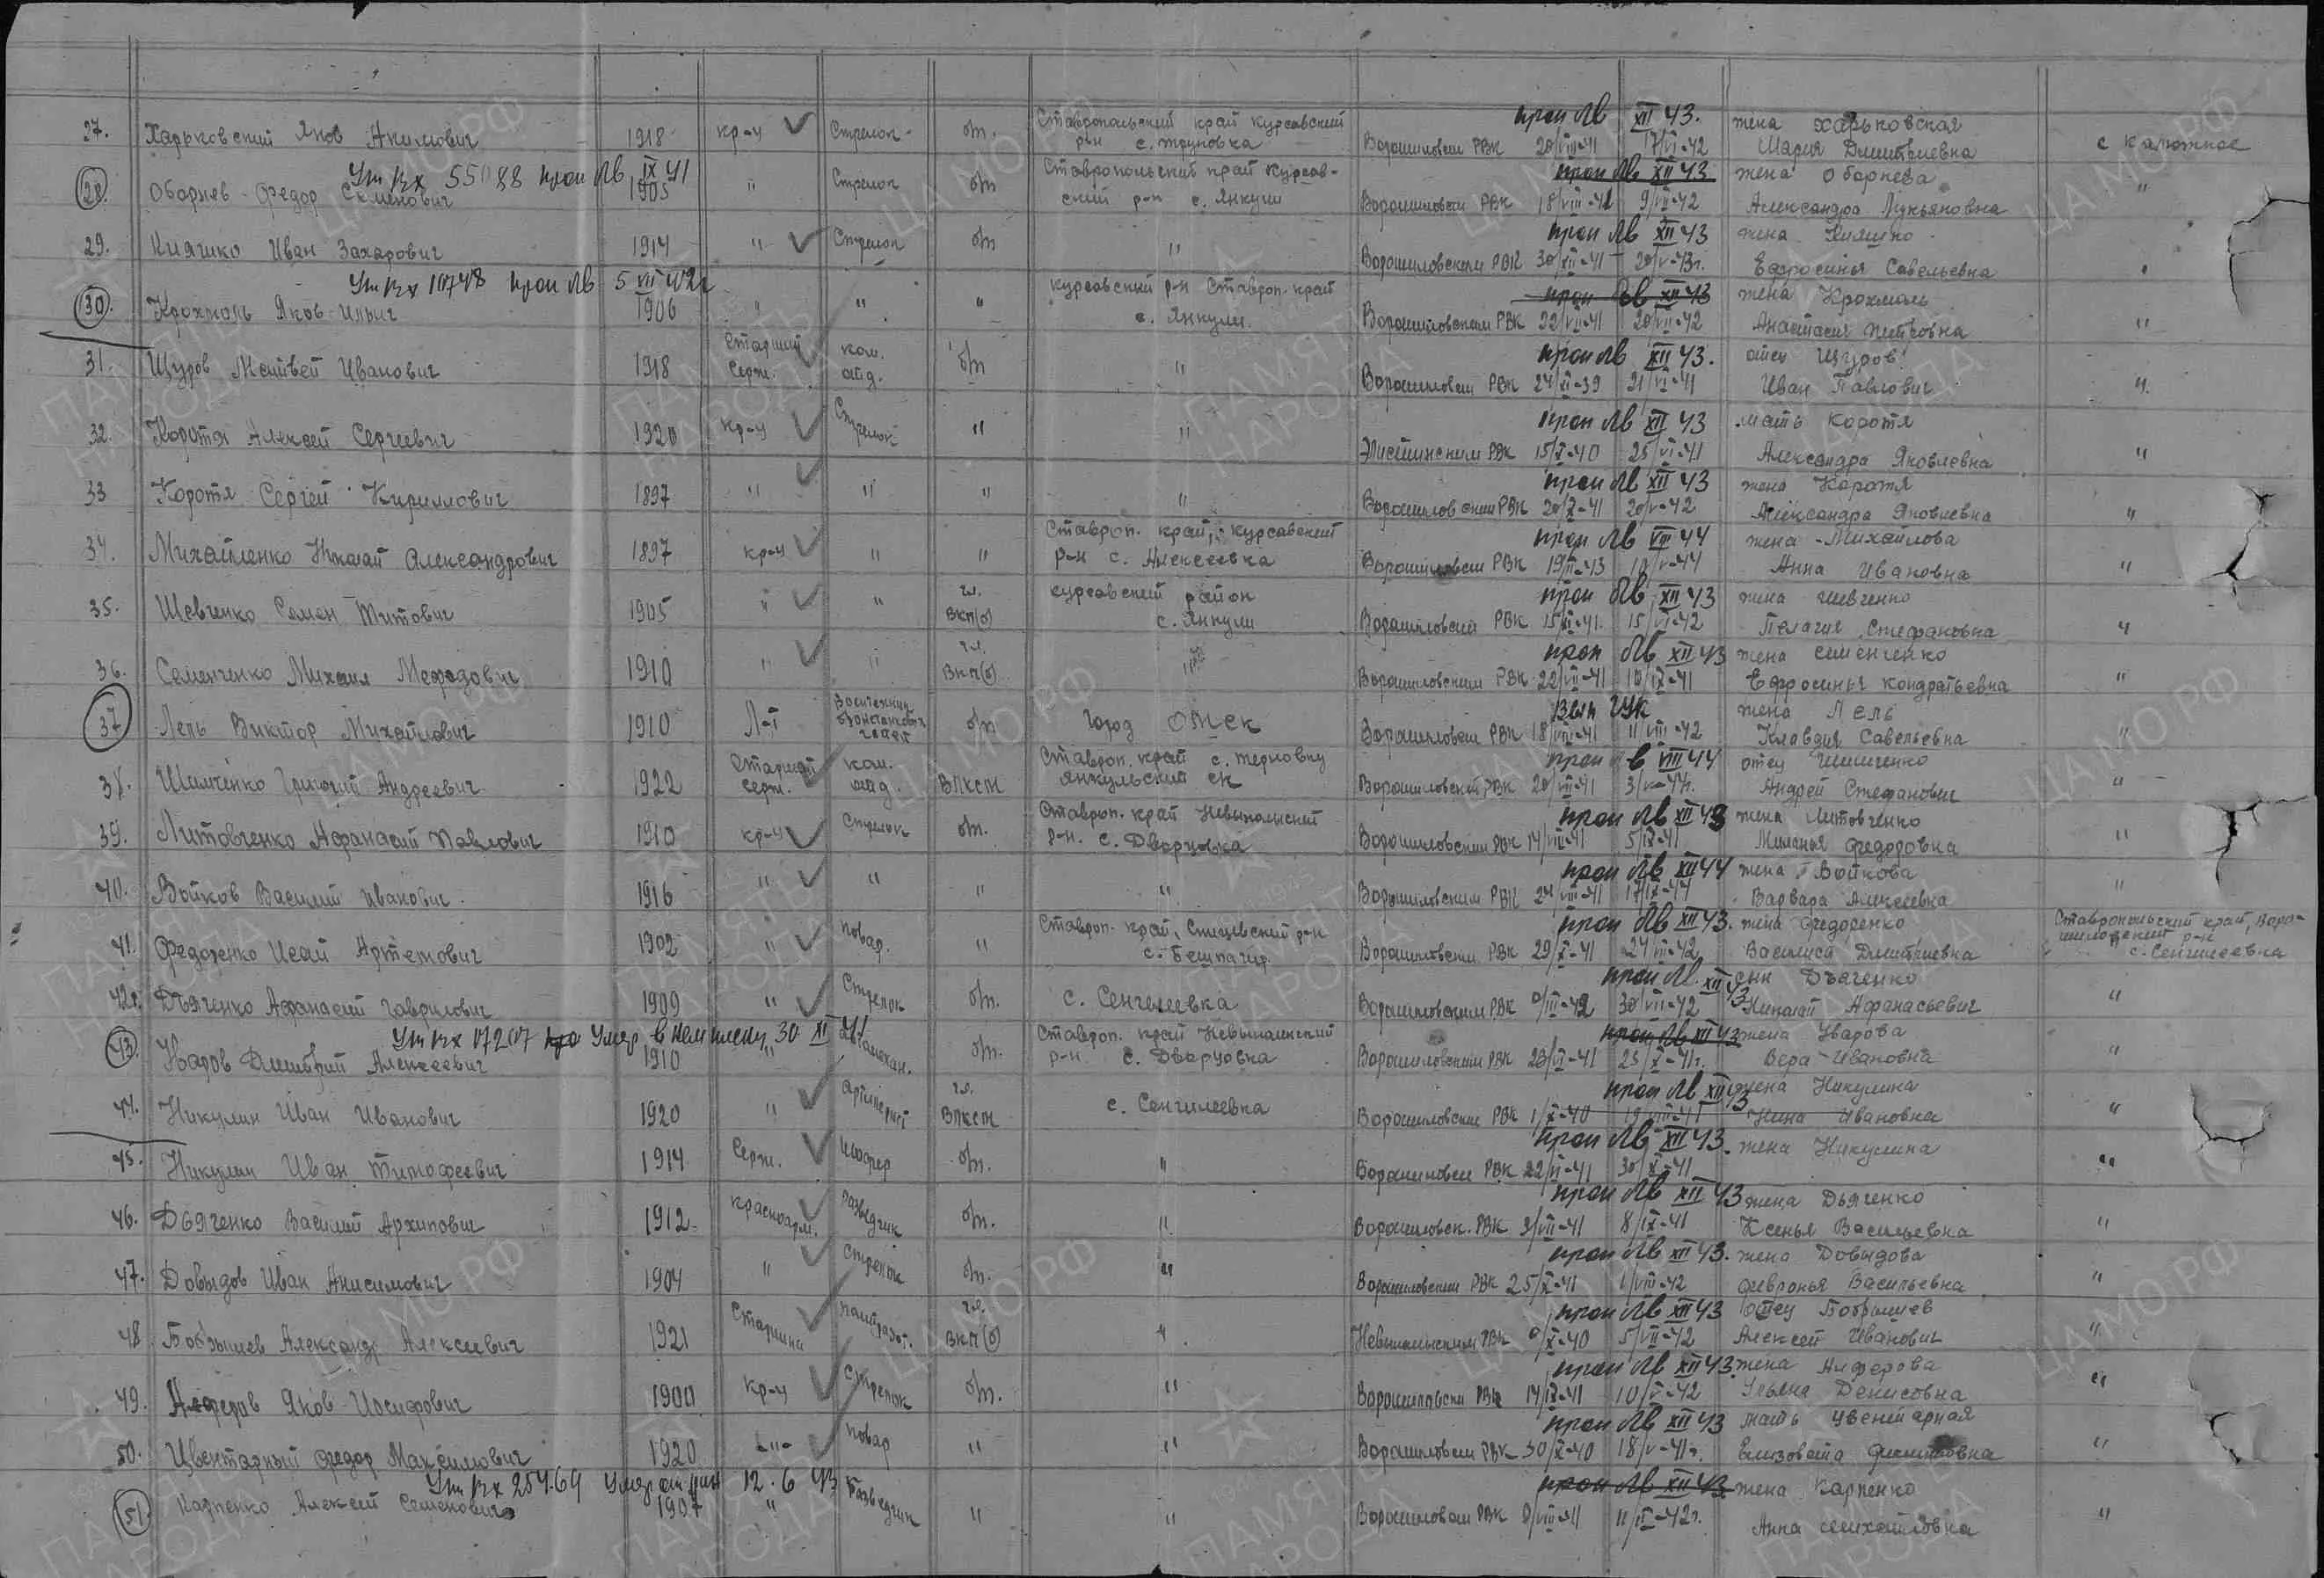 27. Харьковский Яков Акимович 1918 кр-ц Стрелок б/п. Ставропольский край Курсавский проп Лв XII 43. жена Харьковская
р-н с. Труновка Ворошиловским РВК 20/VIII-41 17/VI-42 Мария Дмитриевна с Калюжное
Ут вх 55088 проп Лв IX 41
28. Оборнев Федор Семенович 1905 " Стрелок б/п Ставропольский край Курсав- проп Лв XII 43 жена Оборнева
ский р-н с. Янкули Ворошиловским РВК 18/VIII-41 9/VII-42 Александра Лукьяновна "
29. Кияшко Иван Захарович 1914 " Стрелок б/п " проп Лв XII 43 жена Кияшко
Ворошиловским РВК 30/XII-41 20/V-43г. Ефросинья Савельевна "
Ут вх 110748 проп Лв 5 VII 42г
30. Крохмаль Яков Ильич 1906 " " " Курсавский р-н Ставроп. край проп Лв XII 43 жена Крохмаль
с. Янкули Ворошиловским РВК 22/VII-41 20/VII-42 Анастасия Питровна "
31. Щуров Матвей Иванович 1918 Старший Серж. ком. отд. б/п " проп Лв XII 43. отец Щуров
Ворошиловским РВК 24/XI-39 21/VI-41 Иван Павлович "
32. Коротя Алексей Сергеевич 1920 Кр-ц Стрелок " " проп Лв XII 43 мать Коротя
Элистинским РВК 15/X-40 25/VI-41 Александра Яковлевна "
33 Коротя Сергей Кириллович 1897 " " " " проп Лв XII 43 жена Коротя
Ворошиловским РВК 20/X-41 20/V-42 Александра Яковлевна "
34. Михайленко Николай Александрович 1897 кр-ц " " Ставроп. край, Курсавский проп Лв VIII 44 жена Михайлова
р-н с. Алексеевка Ворошиловским РВК 19/II-43 10/V-44 Анна Ивановна "
35. Шевченко Семен Титович 1905 " " чл. ВКП(б) курсавский район проп Лв XII 43 жена Шевченко
с. Янкули Ворошиловский РВК 15/XI-41. 15/VI-42 Пелагия Стефановна "
36. Семенченко Михаил Мефодович 1910 " " чл. ВКП(б) " проп Лв XII 43 жена Семенченко
Ворошиловским РВК 22/VII-41 10/IX-41 Ефросинья Кондратьевна "
37 Лель Виктор Михайлович 1910 Л-т б/п город Омск Вып ГУК жена Лель
Ворошиловским РВК 18/VIII-41 11/VIII-42 Клавдия Савельевна "
38. Шимченко Григорий Андреевич 1922 Старший серж. ком. отд. ВЛКСМ Ставроп. край с. Терновку проп в VIII 44 отец Шимченко
янкульский ск Ворошиловский РВК 20/VII-41 3/V-44г. Андрей Стефанович "
39. Литовченко Афанасий Павлович 1910 кр-ц Стрелок б/п. Ставроп. край Невыномыский проп Лв XII 43 жена Литовченко
р-н. с. Дворцовка Ворошиловским РВК 14/VIII-41 5/IX-41 Миланья Федоровна "
40. Войков Василий Иванович 1916 " " " " проп Лв XII 44 жена Войкова
Ворошиловским РВК 24/VIII-41 17/IX-44 Варвара Алексеевна "
41. Федоренко Исай Артемович 1902 " повар. " Ставроп. край, Спицевский р-н проп Лв XII 43. жена Федоренко Ставропольский край, Воро-
шиловский р-н
с. Бешпагир Ворошиловским РВК 29/X-41 24/VII-42 Василиса Дмитриевна с. Сенгилеевка
42. Дьяченко Афанасий Гаврилович 1909 " Стрелок б/п. с. Сенгилеевка проп Лв. XII 43 сын Дьяченко
Ворошиловским РВК 9/III-42 30/VII-42 Николай Афанасьевич "
Ут вх 07207 Умер в нем плену 30 XI 41
43. Уваров Дмитрий Алексеевич 1910 " Автомехан. б/п. Ставроп. край Невыномыский проп Лв XII 43 жена Уварова
р-н. с. Дворцовка Ворошиловским РВК 23/VI-41 25/X-41г. Вера Ивановна "
44. Никулин Иван Иванович 1920 " Артилерист чл. ВЛКСМ с. Сенгилеевка проп Лв XII 43 жена Никулина
Ворошиловским РВК 1/X-40 19/VIII-41 Нина Ивановна "
45. Никулин Иван Тимофеевич 1914 Серж. Шофер б/п. " проп Лв XII 43. жена Никулина
Ворошиловским РВК 22/VI-41 30/X-41 "
46. Дьяченко Василий Архипович 1912 красноарм. разведчик б/п. " проп Лв XII 43 жена Дьяченко
Ворошиловск. РВК 3/VII-41 8/IX-41 Ксенья Васильевна "
47. Довыдов Иван Анисимович 1904 " Стрелок б/п. " проп Лв XII 43. жена Довыдова
Ворошиловским РВК 25/X-41 1/VIII-42 Февронья Васильевна "
48 Бобрышев Александр Алексеевич 1921 Старшина политработ. чл. ВКП(б) " проп Лв XII 43 Отец Бобрышев
Невыномыским РВК 9/X-40 5/VII-42 Алексей Иванович "
49. Алферов Яков Иосифович 1900 кр-ц Стрелок б/п. " проп Лв XII 43. жена Алферова
Ворошиловски РВК 14/IX-41 10/V-42 Ульяна Денисовна "
50. Цвентарный Федор Максимович 1920 -"- повар " " проп Лв XII 43 мать Цвентарная
Ворошиловским РВК 30/X-40 18/V-41г. Елизовета Филиповна "
Ут вх 25469 Умер от ран 12.6.43
51. Карпенко Алексей Семенович 1907 " Разведчик " " проп Лв XII 43 жена Карпенко
Ворошиловским РВК 9/VIII-41 11/IX-42г. Анна Михайловна "